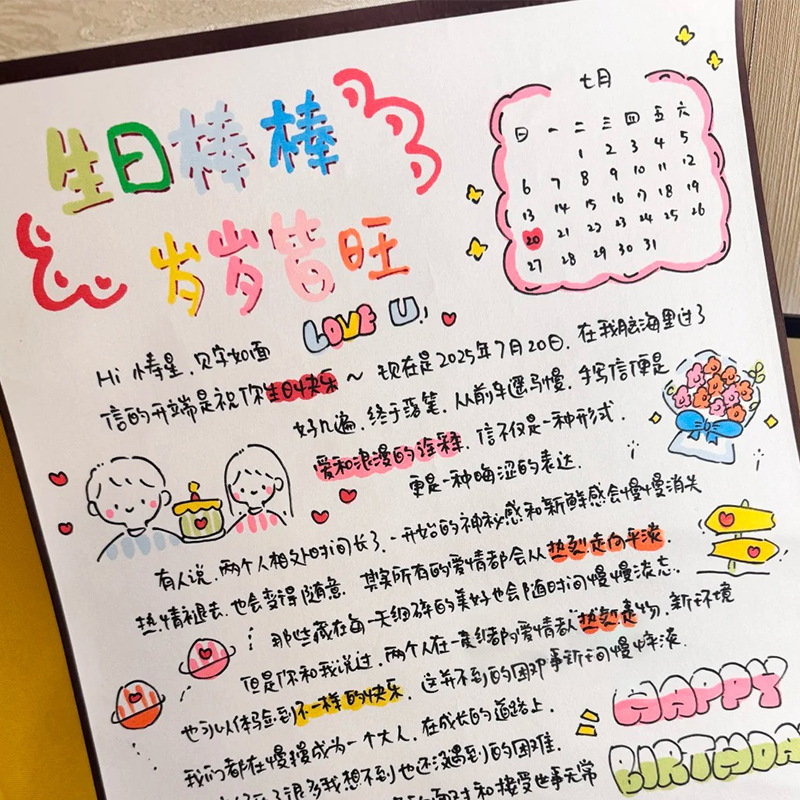 生日棒棒
岁岁皆旺
LOVE U!
七月
日 一 二 三 四 五 六
1 2 3 4 5
6 7 8 9 10 11 12
13 14 15 16 17 18 19
20 21 22 23 24 25 26
27 28 29 30 31
Hi 棒星,见字如面
信的开端是祝你生日快乐~ 现在是2025年7月20日,在我脑海里过了
好几遍,终于落笔,从前车遥马慢,手写信便是
爱和浪漫的诠释,信不仅是一种形式,
更是一种晦涩的表达.
有人说,两个人相处时间长了,一开始的神秘感和新鲜感会慢慢消失
热情褪去,也会变得随意,其实所有的爱情都会从热烈走向平淡,
那些藏在每一天细碎的美好也会随时间慢慢淡忘.
但是你和我说过,两个人在一起 的爱情 热烈 物,新环境
也可以体验到不一样的快乐,这 不到的困 事 间慢慢 淡.
我们都在慢慢成为一个大人,在成长的道路上,
了很多我想不到也还没遇到的困难.
面对和接受世事无常
HAPPY
BIRTHDA